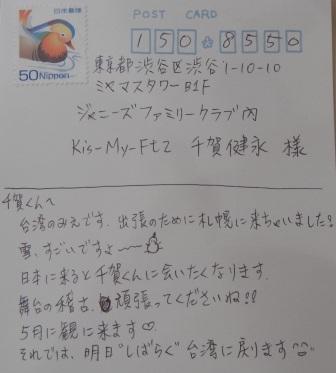 日本郵便
50 Nippon
POST CARD
150 8550
東京都渋谷区渋谷1-10-10
ミヤマスタワーB1F
ジャニーズファミリークラブ内
Kis-My-Ft2 千賀健永 様
千賀くんへ
台湾のみえです。出張のために札幌に来ちゃいました!
雪、すごいですよ〜〜
日本に来ると千賀くんに会いたくなります。
舞台の稽古、頑張ってくださいね!!
5月に観に来ます♡
それでは、明日"しばらく"台湾に戻ります